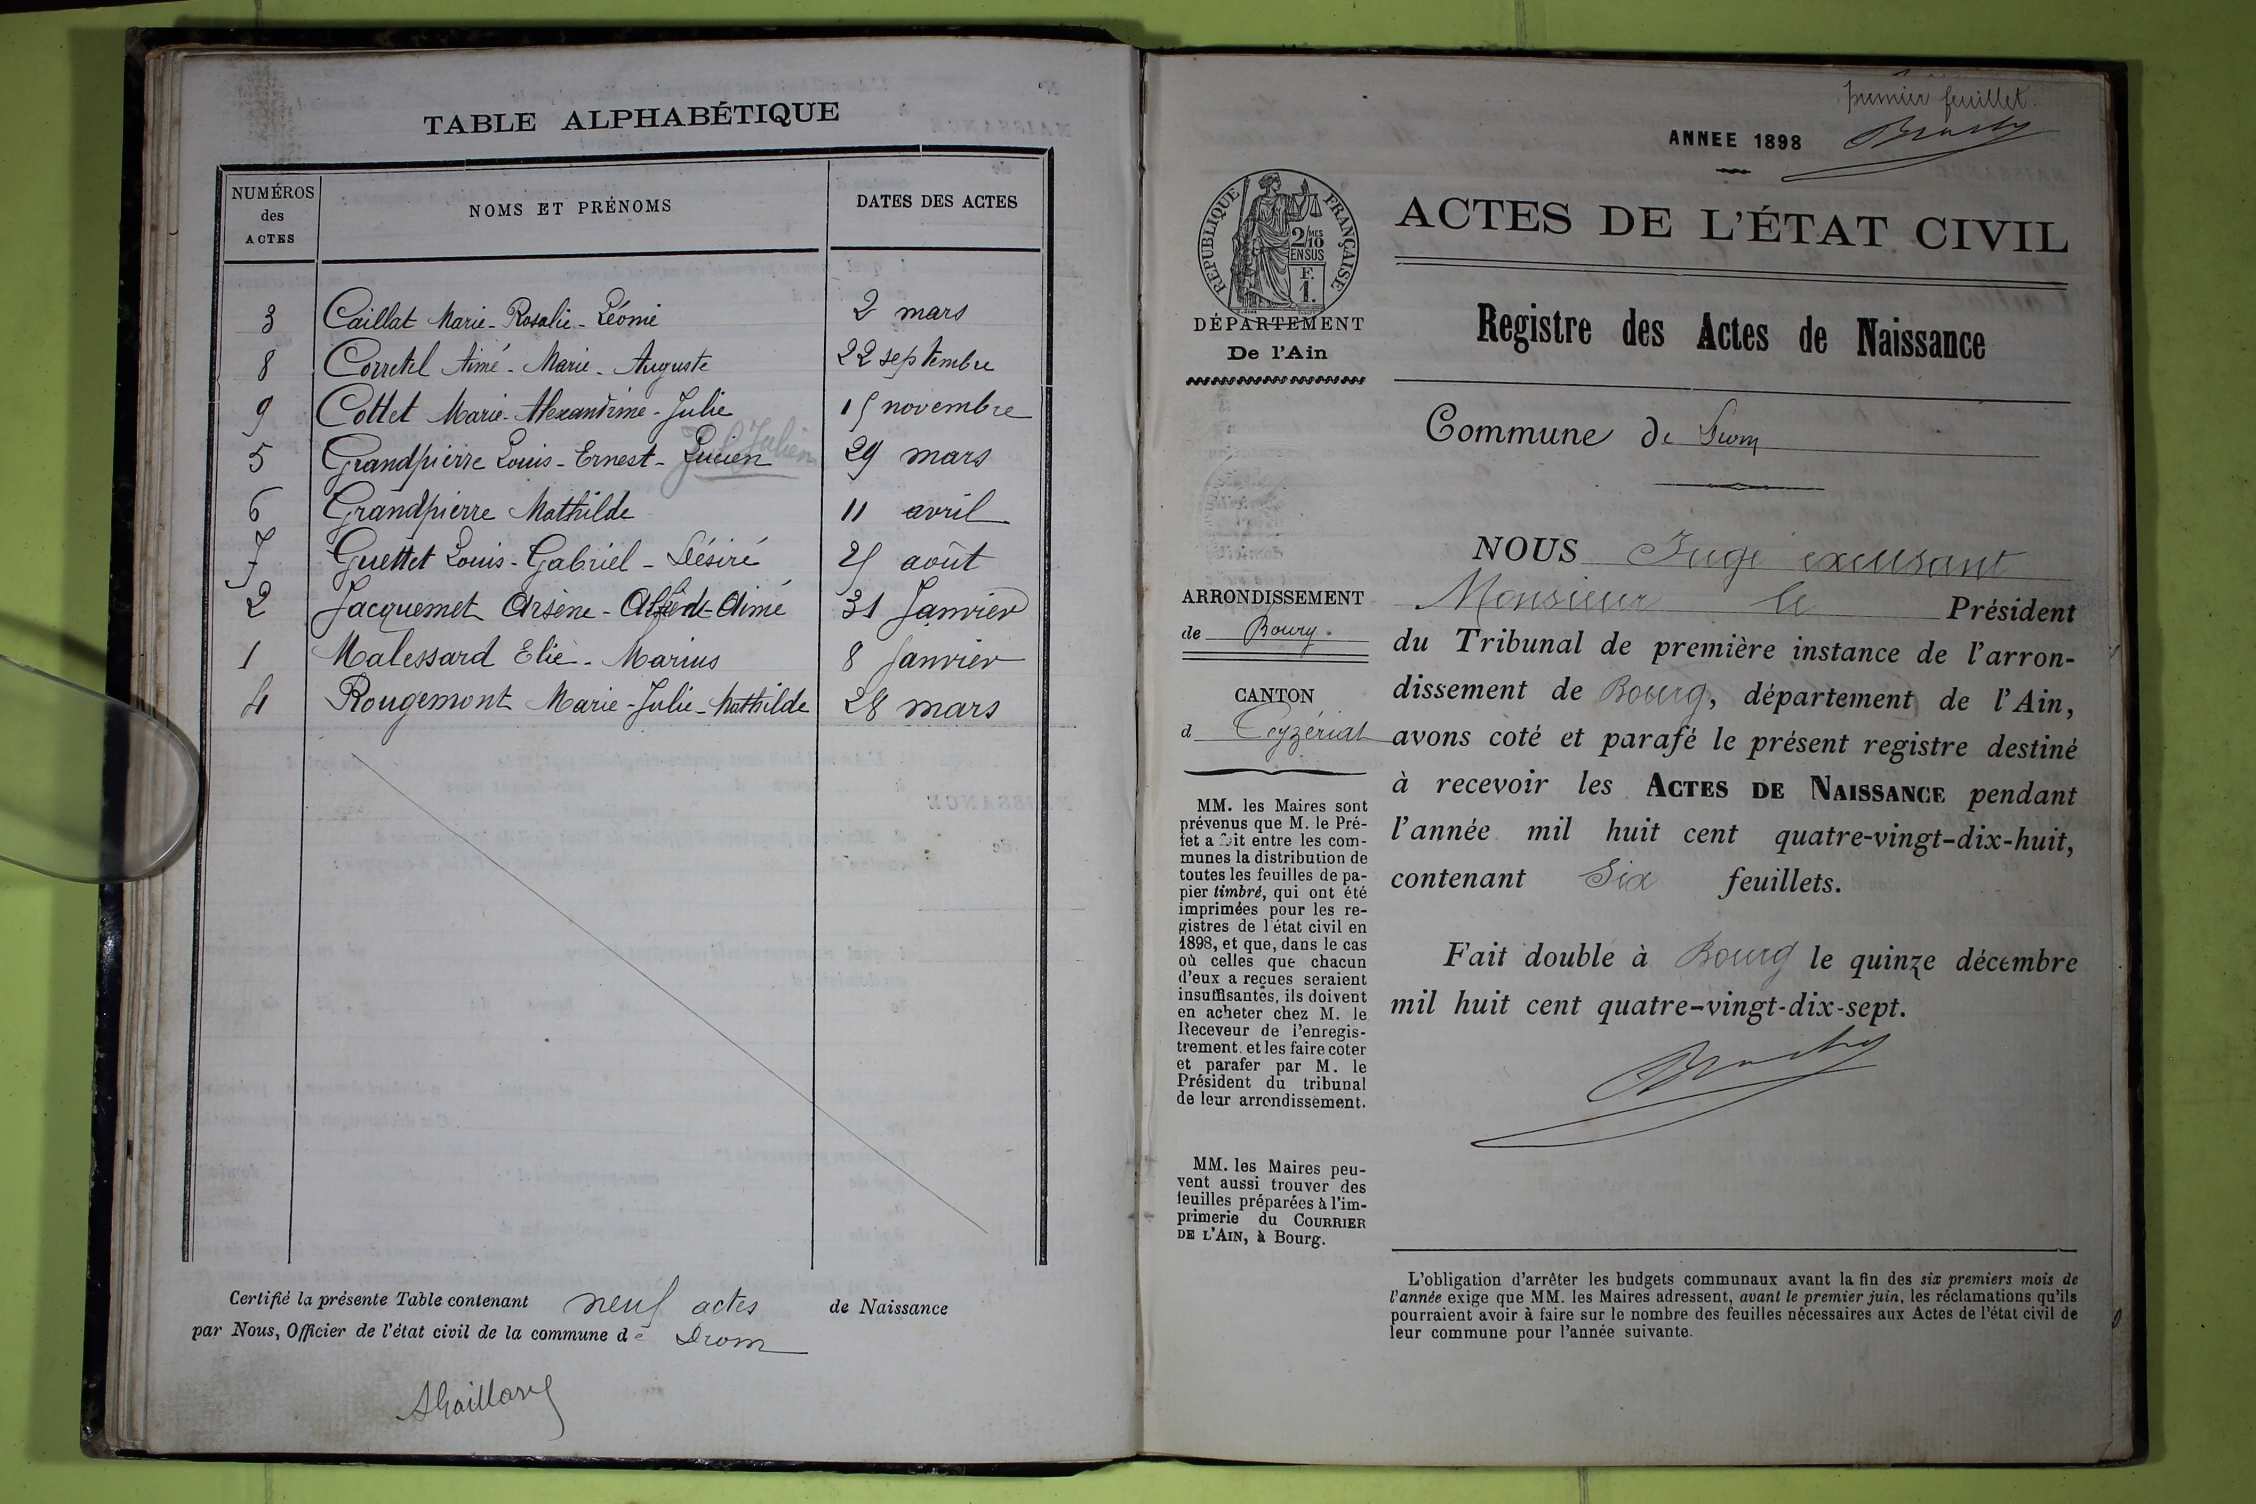 TABLE ALPHABÉTIQUE
NUMÉROS des ACTES
NOMS ET PRÉNOMS
DATES DES ACTES
3 Caillat Marie-Rosalie-Léonie 2 mars
8 Corretel Aimé-Marie-Auguste 22 septembre
9 Cottet Marie-Alexandrine-Julie 15 novembre
5 Grandpierre Louis-Ernest-Lucien Julien 29 mars
6 Grandpierre Mathilde 11 avril
7 Guettet Louis-Gabriel-Désiré 25 août
2 Jacquemet Arsène-Alfred-Aimé 31 Janvier
1 Malessard Elie-Marius 8 Janvier
4 Rougemont Marie-Julie-Mathilde 28 mars
Certifié la présente Table contenant neuf actes de Naissance
par Nous, Officier de l'état civil de la commune de Drom
premier feuillet.
ANNEE 1898
RÉPUBLIQUE FRANÇAISE
2/10 MES
EN SUS
F.
1.
DÉPARTEMENT
De l'Ain
ACTES DE L'ÉTAT CIVIL
Registre des Actes de Naissance
Commune de Drom
ARRONDISSEMENT
de Bourg.
CANTON
d Ceyzériat
MM. les Maires sont
prévenus que M. le Pré-
fet a fait entre les com-
munes la distribution de
toutes les feuilles de pa-
pier timbré, qui ont été
imprimées pour les re-
gistres de l'état civil en
1898, et que, dans le cas
où celles que chacun
d'eux a reçues seraient
insuffisantes, ils doivent
en acheter chez M. le
Receveur de l'enregis-
trement. et les faire coter
et parafer par M. le
Président du tribunal
de leur arrondissement.
MM. les Maires peu-
vent aussi trouver des
feuilles préparées à l'im-
primerie du COURRIER
DE L'AIN, à Bourg.
NOUS Juge excusant
Monsieur le Président
du Tribunal de première instance de l'arron-
dissement de Bourg, département de l'Ain,
avons coté et parafé le présent registre destiné
à recevoir les ACTES DE NAISSANCE pendant
l'année mil huit cent quatre-vingt-dix-huit,
contenant Six feuillets.
Fait double à Bourg le quinze décembre
mil huit cent quatre-vingt-dix-sept.
L'obligation d'arrêter les budgets communaux avant la fin des six premiers mois de
l'année exige que MM. les Maires adressent, avant le premier juin, les réclamations qu'ils
pourraient avoir à faire sur le nombre des feuilles nécessaires aux Actes de l'état civil de
leur commune pour l'année suivante.